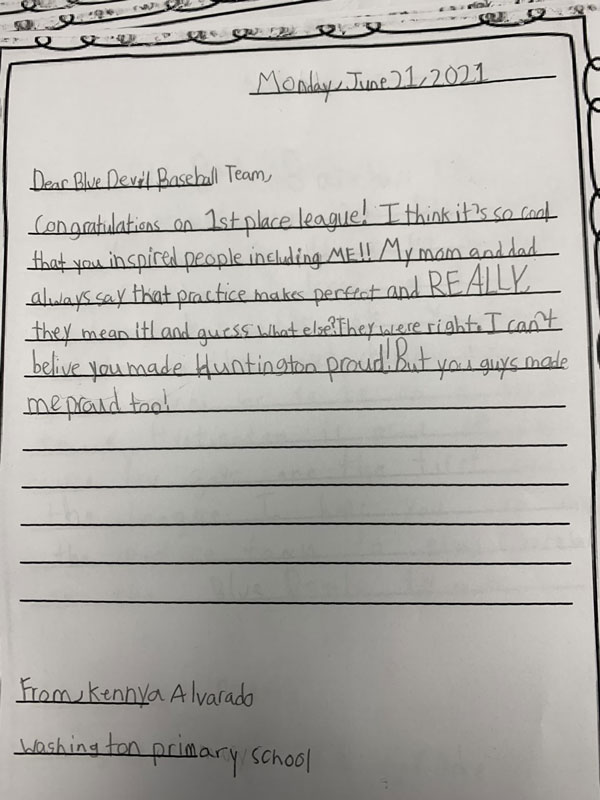 Monday, June 21, 2021
Dear Blue Devil Baseball Team,
Congratulations on 1st place league! I think it's so cool
that you inspired people including ME!! My mom and dad
always say that practice makes perfect and REALLY,
they mean it! and guess what else? They were right. I can't
belive you made Huntington proud! But you guys made
me proud too!
From, Kennya Alvarado
Washington primary school